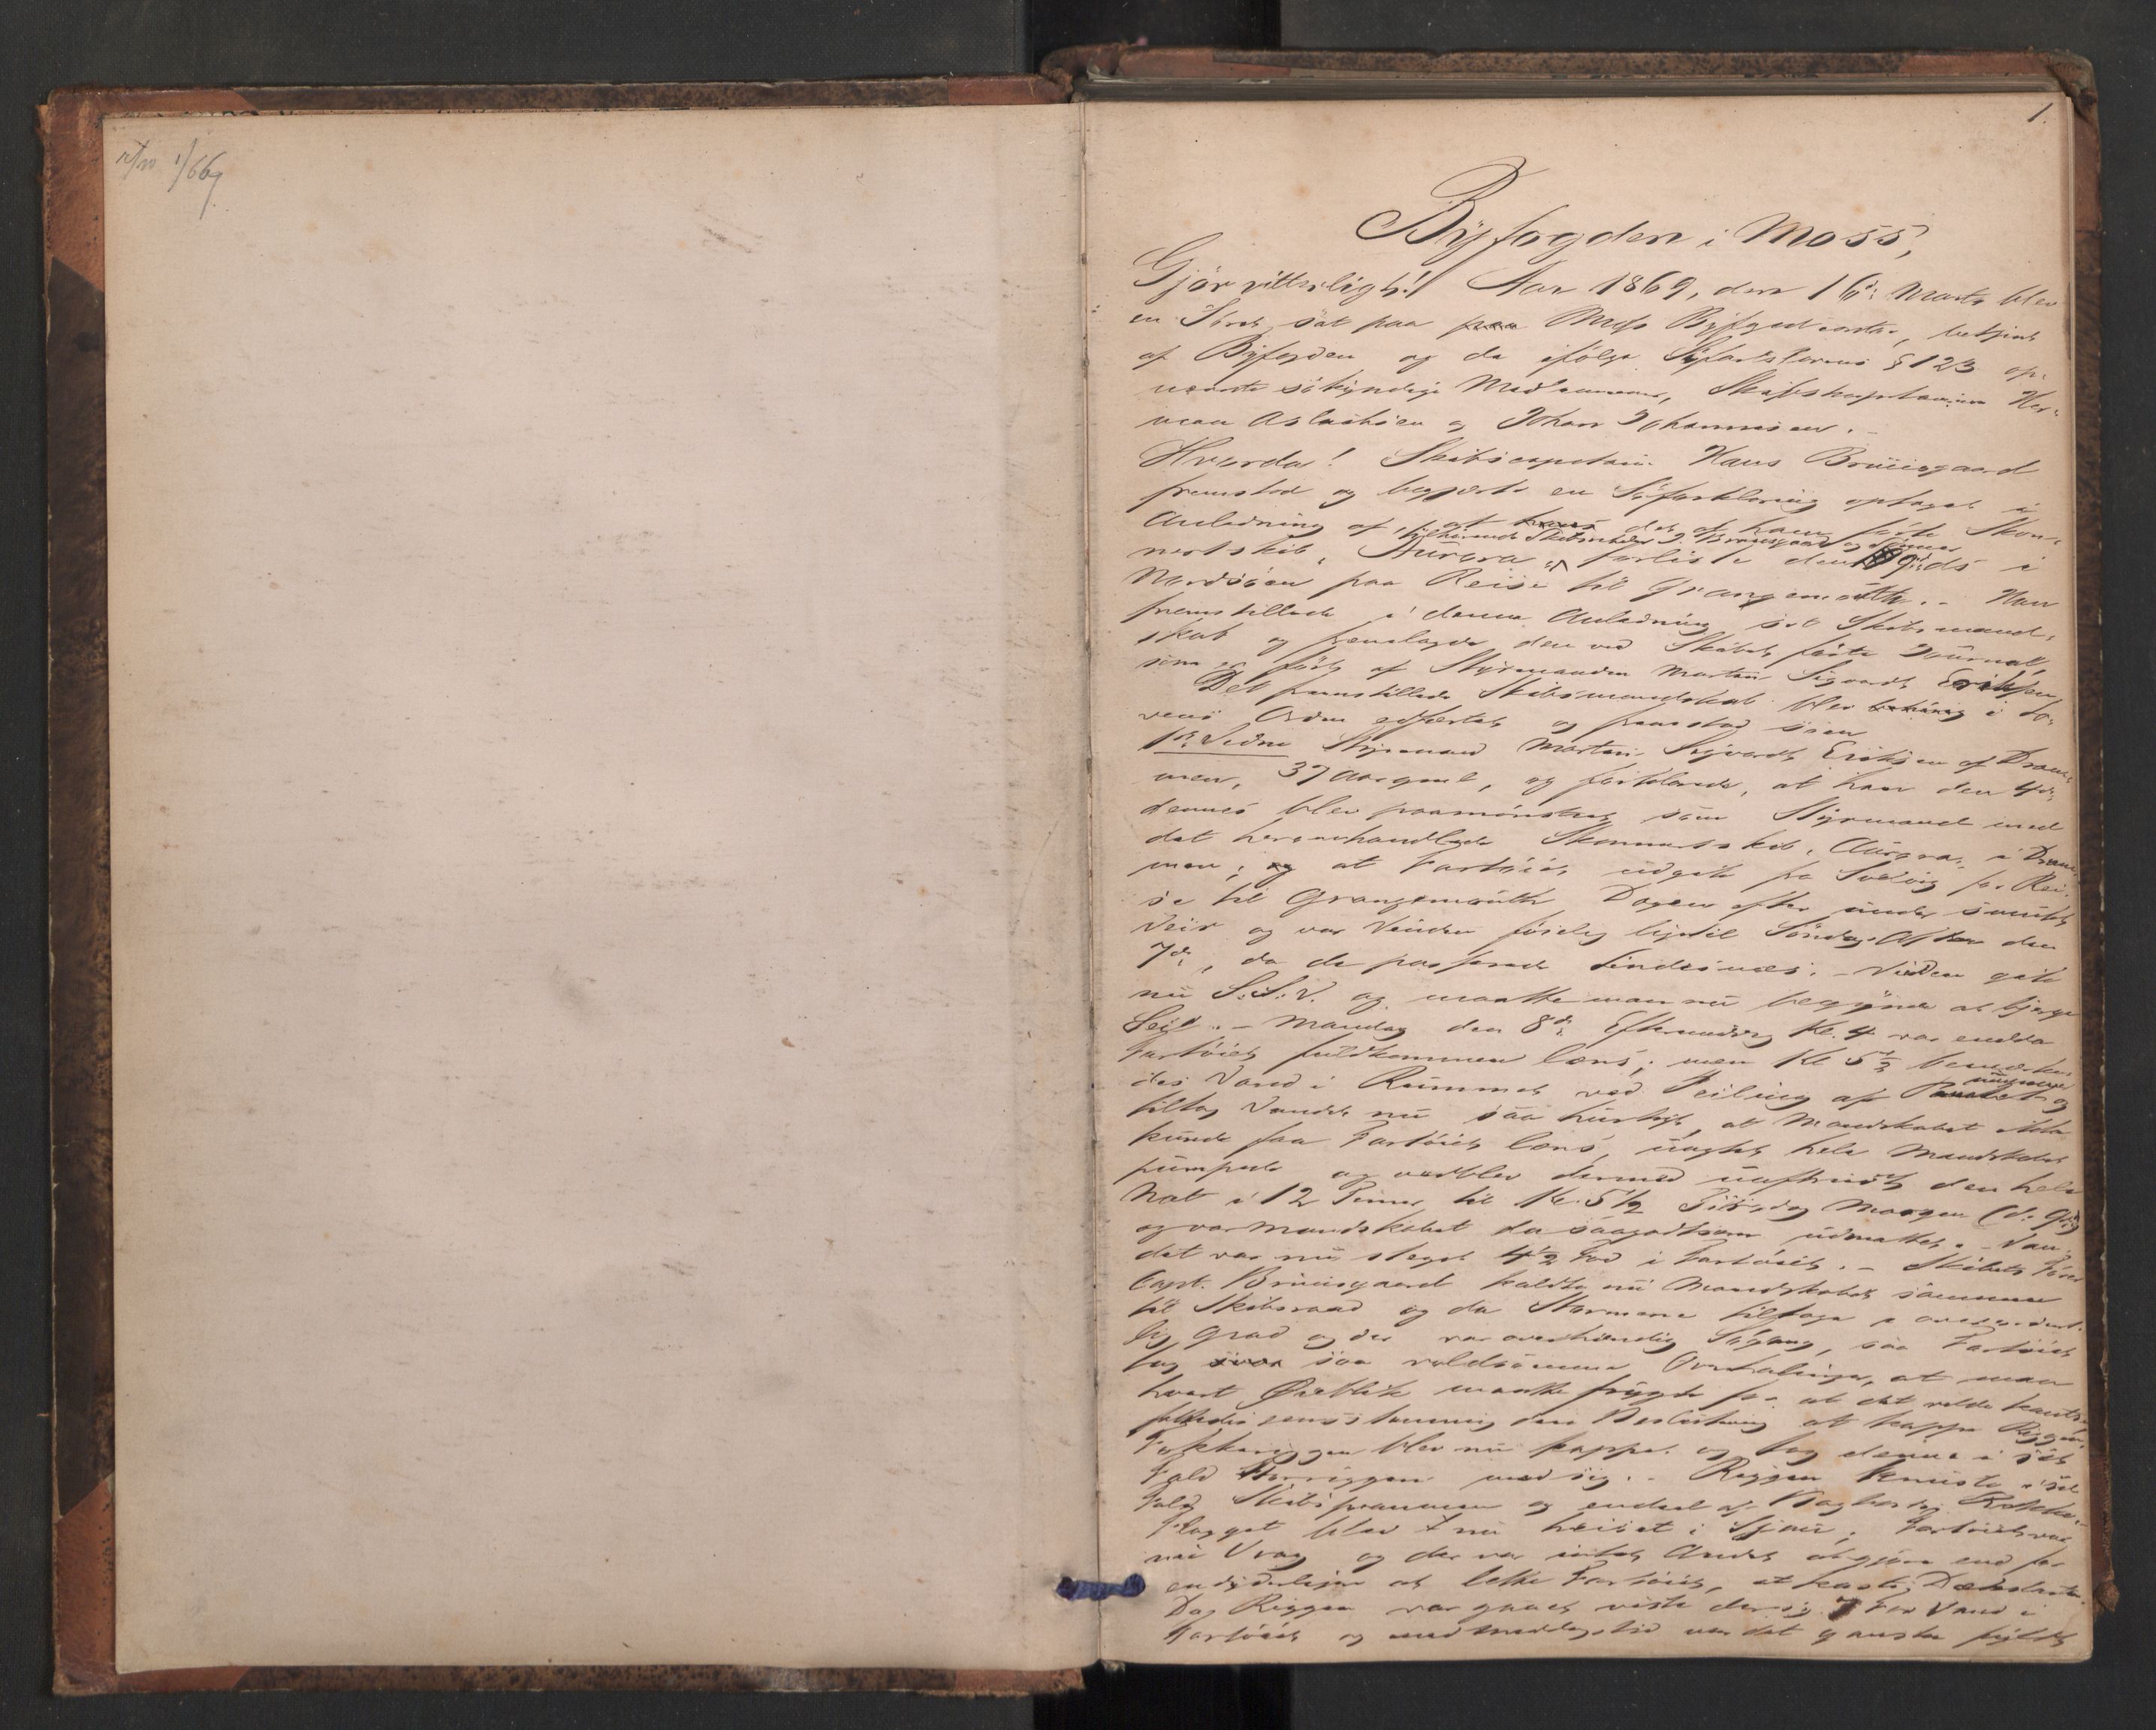 1/66
1.
Byfogden i Moss,
Gjør vitterligt! Aar 1869, den 16de Marts blev
en Søret sat paa paa Moss Byfogedcontor, betjent
af Byfogden og de ifølge Søfartslovens § 123 op-
nævnte søkyndige Medlemmer, Skibskaptainerne Her-
man Aslaksen og Johan Johannesen. -
Hvorda! Skibscaptain Hans Brüüsgaard
fremstod og begjærte en Søforklaring optaget i
Anledning af, at det af ham førte Skon-
tilhørende Skibsrheder J. Brüüsgaard og
nertskib "Aurora" forliste den 9de ds i
Nordsøen paa Reise til Grangemouth. - Han
fremstillede i denne Anledning sit Skibsmand-
skab og fremlagde den ved Skibet førte Journal,
som er ført af Styrmanden Martin Sigvardt Eriksen
Det fremstillede Skibsmandskab blev i Lo-
vens Orden edfæstet og fremstod som
1ste Vidne Styrmand Martin Sigvardt Eriksen af Dram-
men, 37 Aar gml, og forklarede, at han den 4de
dennes blev paamønstret som Styrmand med
det heromhandlede Skonnertskib "Aurora" i Dram-
men, og at Fartøiet udgik fra Svelvig paa Rei-
se til Grangemouth Dagen efter under smukt
Veir og var Vinden føielig lige til Søndag Aften den
7de, da de passerede Lindesnæs. - Vinden gik
nu S.S.V. og maatte man nu begynde at bjerge
Seil. - Mandag den 8de Eftermiddag Kl. 4 var endda
Fartøiet fuldkommen læns, men Kl 5½ bemærke-
des Vand i Rummet ved Peiling af og
tiltog Vandet nu saa hurtigt, at Mandskabet ikke
kunde faa Fartøiet læns, uagtet hele Mandskabet
pumpede og vedblev dermed uafbrudt den hele
Nat i 12 Timer til Kl. 5½ Tirsdag Morgen (d. 9de)
og var Mandskabet da saagodtsom udmattet. - Van-
det var nu steget 4½ Fod i Fartøiet. - Skibets Fører
Capt. Brüüsgaard kaldte nu Mandskabet sammen
til Skibsraad og da Stormene tiltoge i overordent-
lig Grad og der var overhændig Søgang, saa Fartøiet
tog saa voldsomme Overhalinger, at man
hvert Øieblik maatte frygte for at det vilde kantre,
fattedes eensstemmig den Beslutning at kappe Riggen.
Fokkeriggen blev nu kappet og tog denne i sit
Fald Storriggen med sig. - Riggen knuste i sit
Fald Skibsprammen og endeel af
Flagget blev nu heiset i Sjau; Fartøiet var
nu Vrag og der var intet Andet at gjøre end for
endyderligere at lette Fartøiet, at kaste Dækslasten.
Da Riggen var gaaet viste der sig Fod Vand i
Fartøiet og ved Middagstid var det ganske fyldt